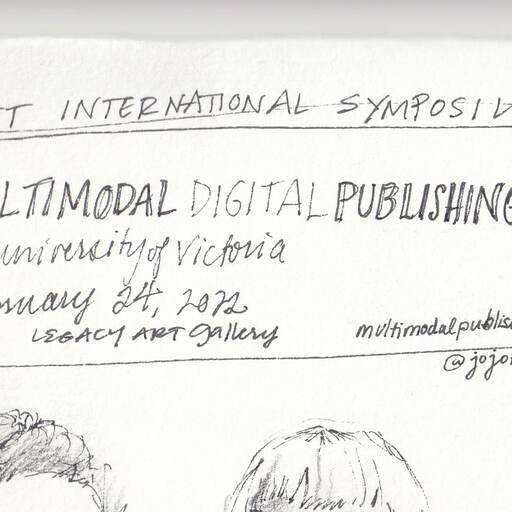 T INTERNATIONAL SYMPOSIU
LTIMODAL DIGITAL PUBLISHING
university of Victoria
ruary 24, 2022
LEGACY ART Gallery
multimodalpublis
@jojo